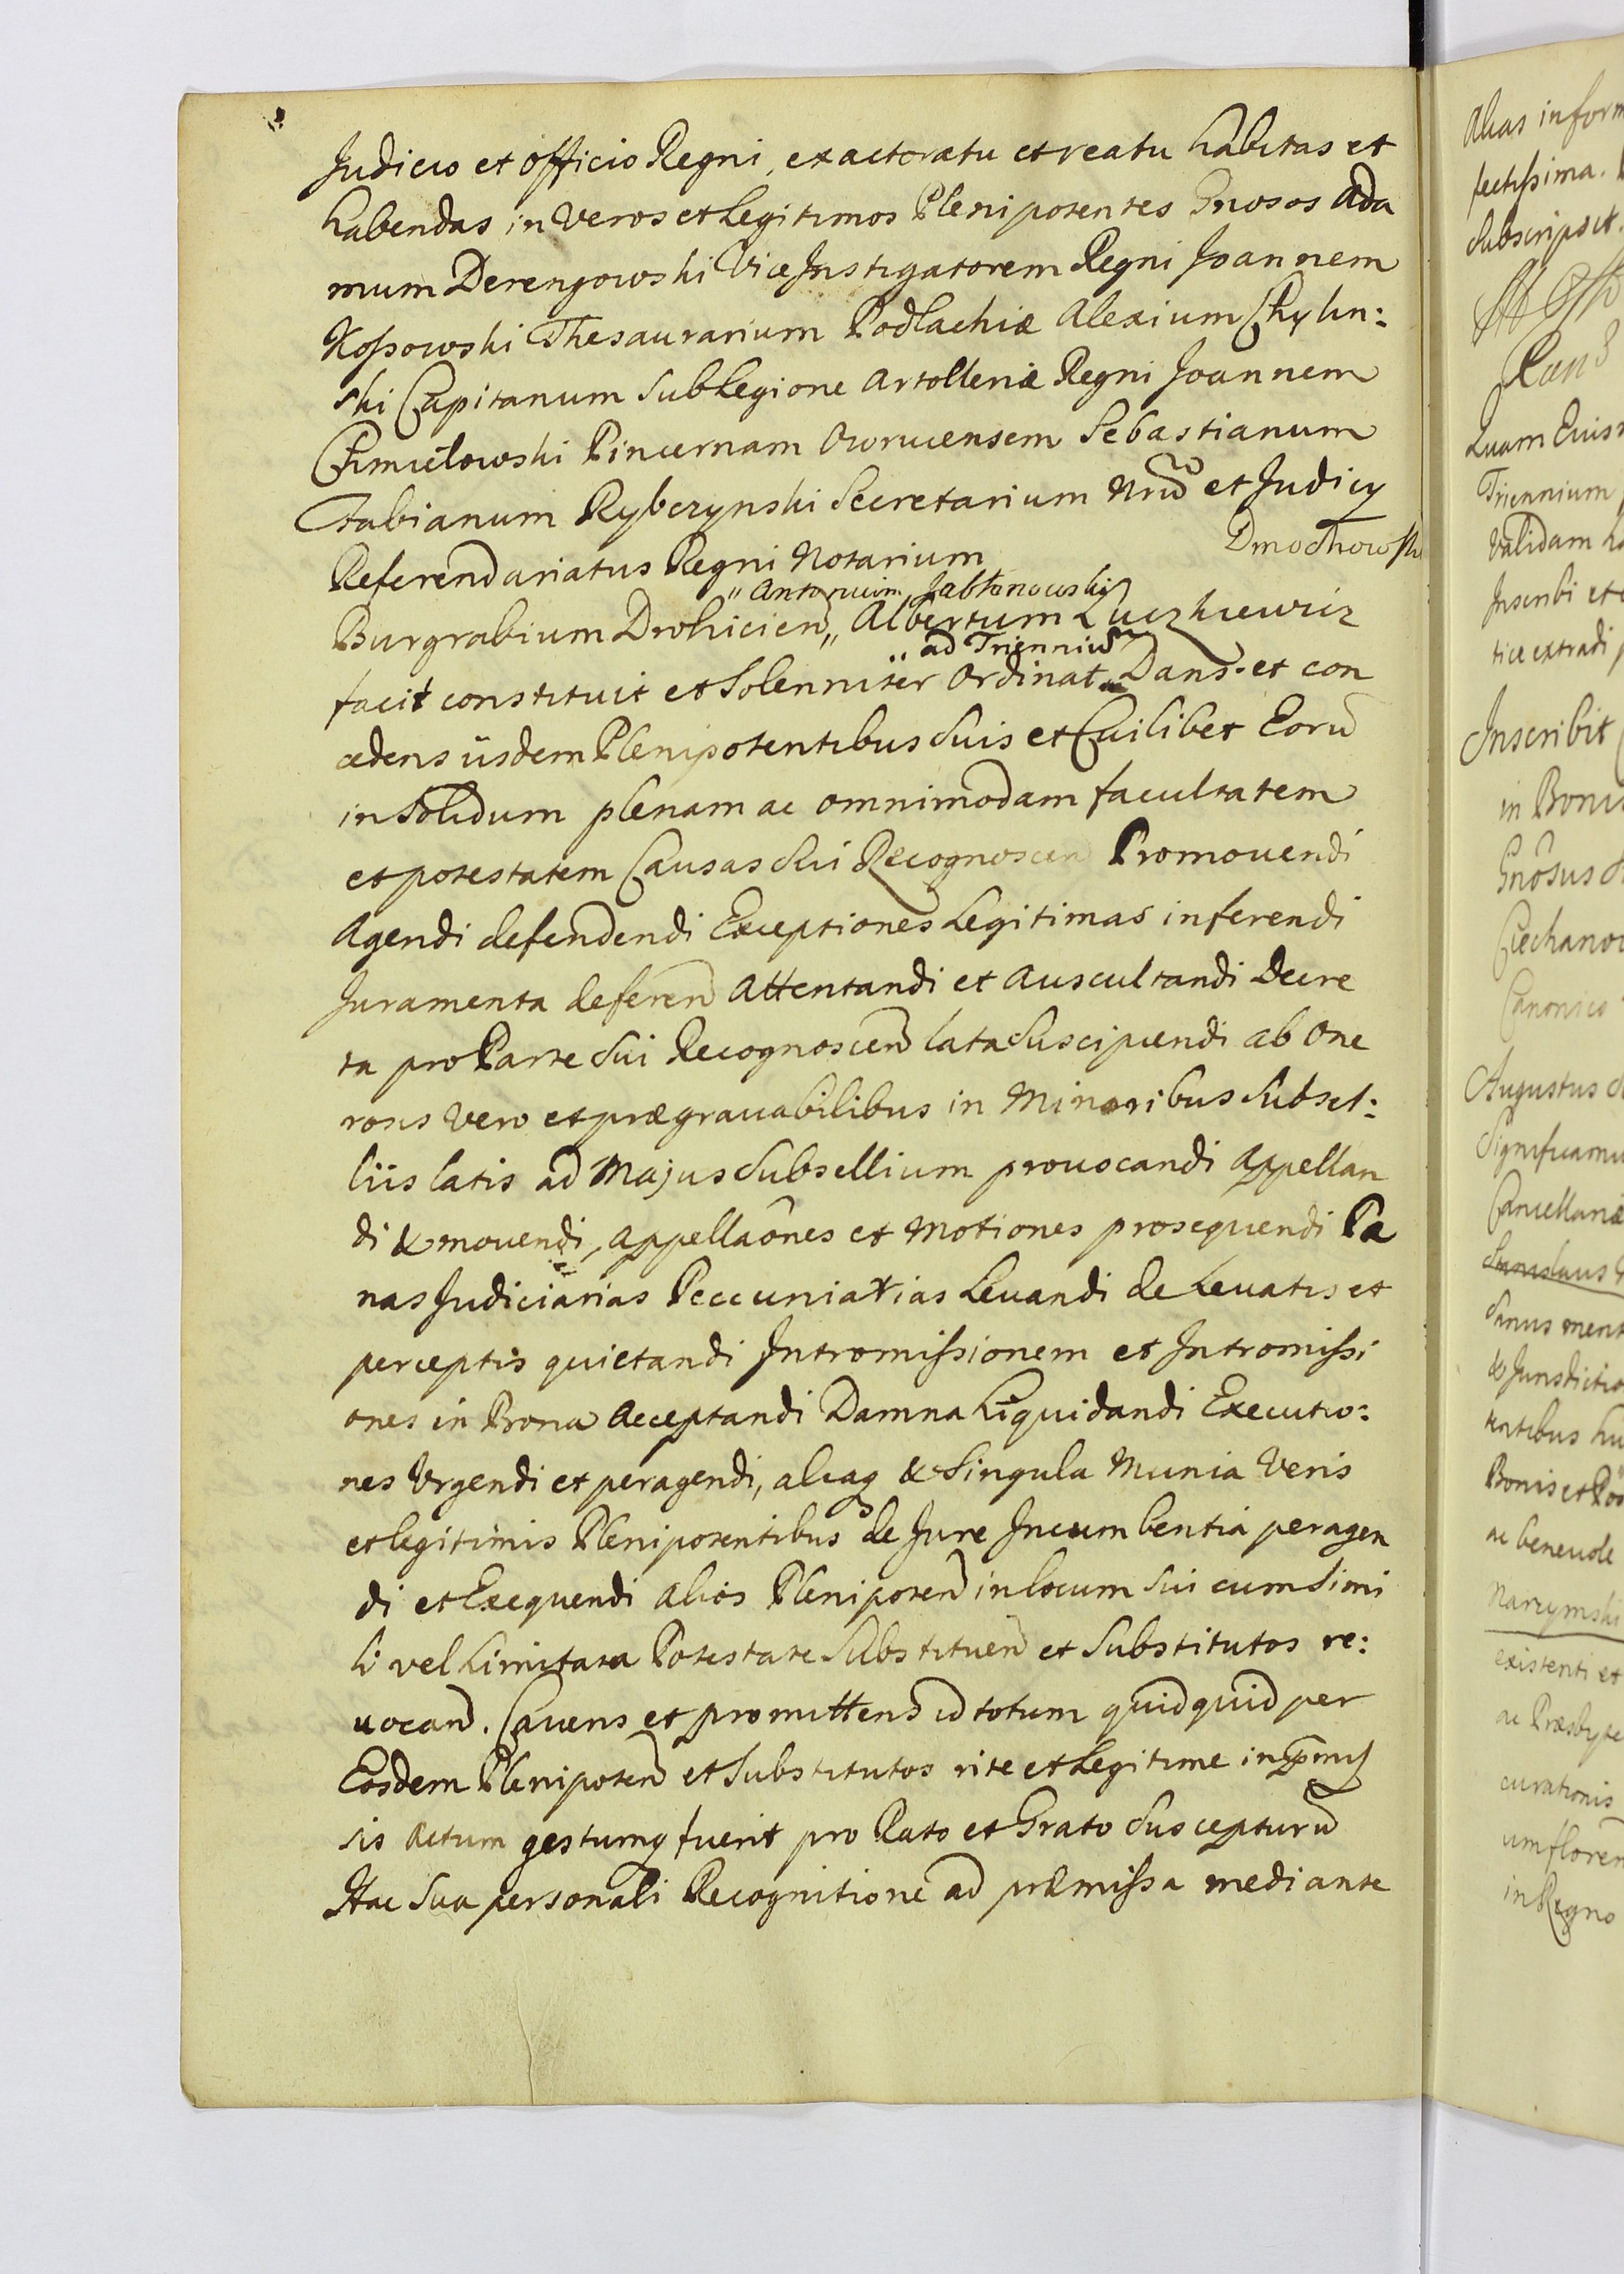 Judicio et officio Regni, exactoratu et reatu habitas et
habendas in Veros et Legitimos Plenipotentes Gnosos Ada
mum Derengowski ViceInstigatorem Regni Joannem
Kossowski Thesaurarium Podlachiæ Alexium Chylin:
ski Capitanum sub Legione Artolleriæ Regni Joannem
Chmielowski Pincernam Owrucensem Sebastianum
Fabianum Rybczynski Secretarium Nrũ et Judicy
Referendariatus Regni Notarium Dmochowski
„ Antonium Jabłonowski
Burgrabium Drohicien „ Albertum Luczkiewicz
„ ad Trienniũ
facit constituit et Solenniter Ordinat Dans et con
cedens iisdem Plenipotentibus Suis et Cuilibet Eorũ
in Solidum plenam ac omnimodam facultatem
et potestatem Causas Sui Recognoscen Promovendi
Agendi defendendi Exceptiones Legitimas inferendi
Juramenta deferen Attentandi et Auscultandi Decre
ta pro Parte Sui Recognoscen lata Suscipiendi ab One
rosis Vero et prægrauabilibus in Minoribus Subsel:
liis latis ad Majus Subsellium prouocandi Appellan
di & mouendi, Appellaõnes et Motiones prosequendi Pæ
nas Judiciarias Peccuniarias Levandi de Levatis et
perceptis quietandi Intromissionem et Intromissi
ones in Bona Acceptandi Damna Liquidandi Executio:
nes Vrgendi et peragendi, aliaq & Singula Munia Veris
et legitimis Plenipotentibus de Jure Incumbentia peragen
di et Exequendi Alios Plenipoten in locum Sui cum Simi
li vel Limitata Potestate Substituen et Substitutos re:
uocan. Cavens et promittens id totum quidquid per
Eosdem Plenipoten et Substitutos rite et Legitime in pmis
sis Actum gestumq fuerit pro Rato et Grato Suscepturũ
Hac Sua personali Recognitione ad præmissa mediante
Alias inform
fectissima.
Subscripsit.
Quam Eius
Triennium
Validam
Inscribi et
tice extradi
Inscribit
in Bonis
Gnõsus
Ciechanow
Canonico
Augustus
Significamus
Cancellariæ
Sanus ment
& Jurisdictio
tentibus hu
Bonis et
ac beneuole
Narzymski
existenti et
ac Præsbyte
curationis
um floren
in Regno